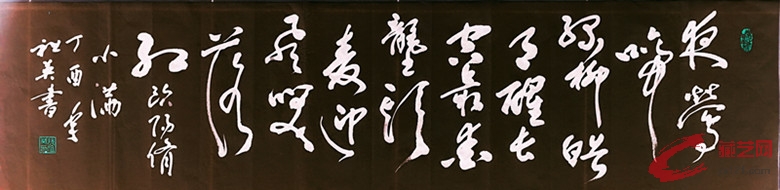 夜鶯
啼
绿柳皓
月醒长
空最爱
壟头
麦迎
风笑
落
红 欧阳修
小满
丁酉年
英书